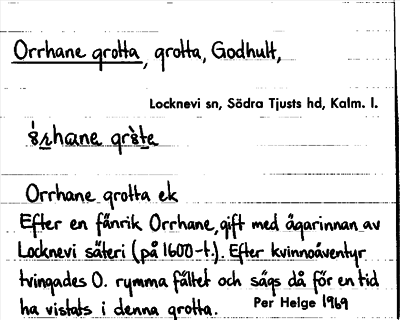 Orrhane grotta, grotta, Godhult,
Locknevi sn, Södra Tjusts hd, Kalm. l.
Orrhane grotta ek
Efter en fänrik Orrhane, gift med ägarinnan av
Locknevi säteri (på 1600-t.). Efter kvinnoäventyr
tvingades O. rymma fältet och sägs då för en tid
ha vistats i denna grotta. Per Helge 1969